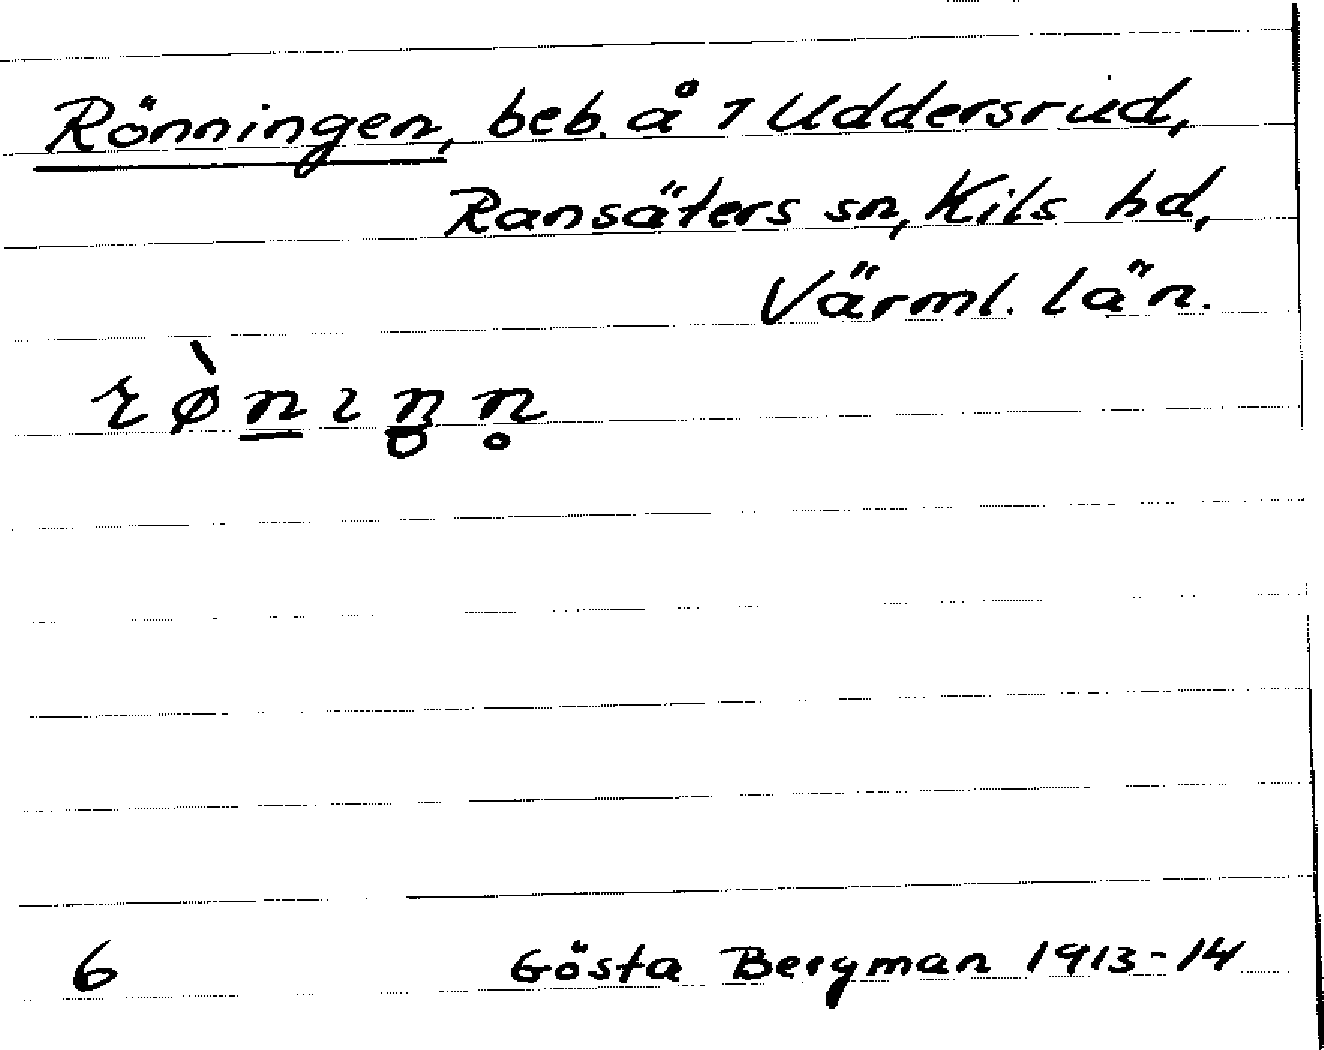 Rönningen, beb. å 7 Uddersrud,
Ransäters sn, Kils hd,
Värml. län.
6 Gösta Bergman 1913-14